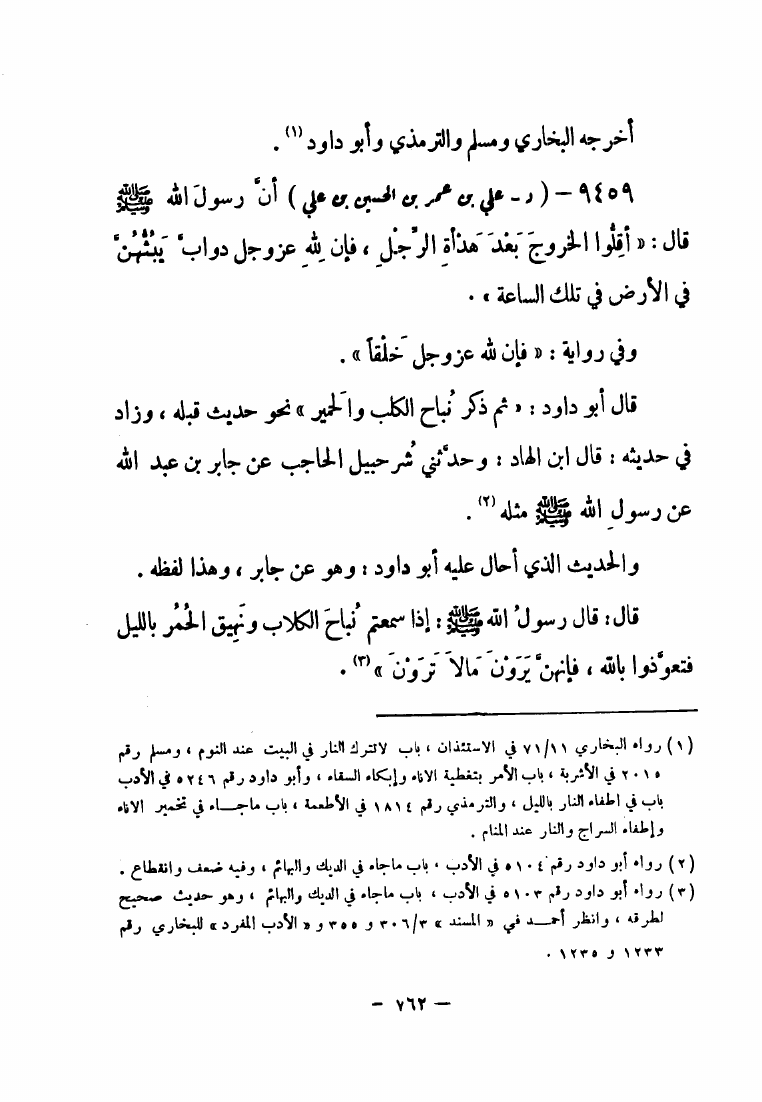 أخرجه البخاري ومسلم والترمذي وأبو داود (١) .
٩٤٥٩ – ( د - علي بن عمر بن الحسين بن علي ) أنَّ رسولَ الله ﷺ
قال : « أقِلُّوا الخروجَ بَعْدَ هَدْأةِ الرِّجْلِ ، فإن لِلّهِ عزوجل دوابَّ يَبُثُّهُنَّ
في الأرض في تلك الساعة » .
وفي رواية : « فإن لله عزوجل خَلْقاً » .
قال أبو داود : « ثم ذكر نُباح الكلب والحَمير » نحو حديث قبله ، وزاد
في حديثه : قال ابن الهاد : وحدَّثني شُرحبيل الحاجب عن جابر بن عبد الله
عن رسولِ الله ﷺ مثله (٢) .
والحديث الذي أحال عليه أبو داود : وهو عن جابر ، وهذا لفظه .
قال : قال رسولُ الله ﷺ : إذا سمعتم نُباحَ الكلاب ونَهِيق الحُمُر بالليل
فتعوَّذوا بالله ، فإنهنَّ يَرَوْنَ مَالاَ تَرَوْنَ » (٣) .
(١) رواه البخاري ٧١/١١ في الاستئذان ، باب لاتترك النار في البيت عند النوم ، ومسلم رقم
٢٠١٥ في الأشربة ، باب الأمر بتغطية الاناء وإيكاء السقاء ، وأبو داود رقم ٥٢٤٦ في الأدب
باب في اطفاء النار بالليل ، والترمذي رقم ١٨١٤ في الأطعمة ، باب ماجاء في تخمير الاناء
وإطفاء السراج والنار عند المنام .
(٢) رواه أبو داود رقم ٥١٠٤ في الأدب ، باب ماجاء في الديك والبهائم ، وفيه ضعف وانقطاع .
(٣) رواه أبو داود رقم ٥١٠٣ في الأدب ، باب ماجاء في الديك والبهائم ، وهو حديث صحيح
لطرقه ، وانظر أحمد في « المسند » ٣٠٦/٣ و ٣٥٥ و « الأدب المفرد » للبخاري رقم
١٢٣٣ و ١٢٣٥ .
– ٧٦٢ –